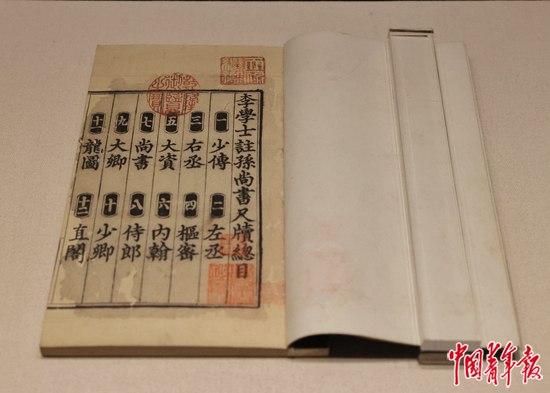 李學士註孫尚書尺牘總目
一 少傅 二 左丞
三 右丞 四 樞密
五 大資 六 內翰
七 尚書 八 侍郎
九 大卿 十 少卿
十一 龍圖 十二 直閣
中國青年報